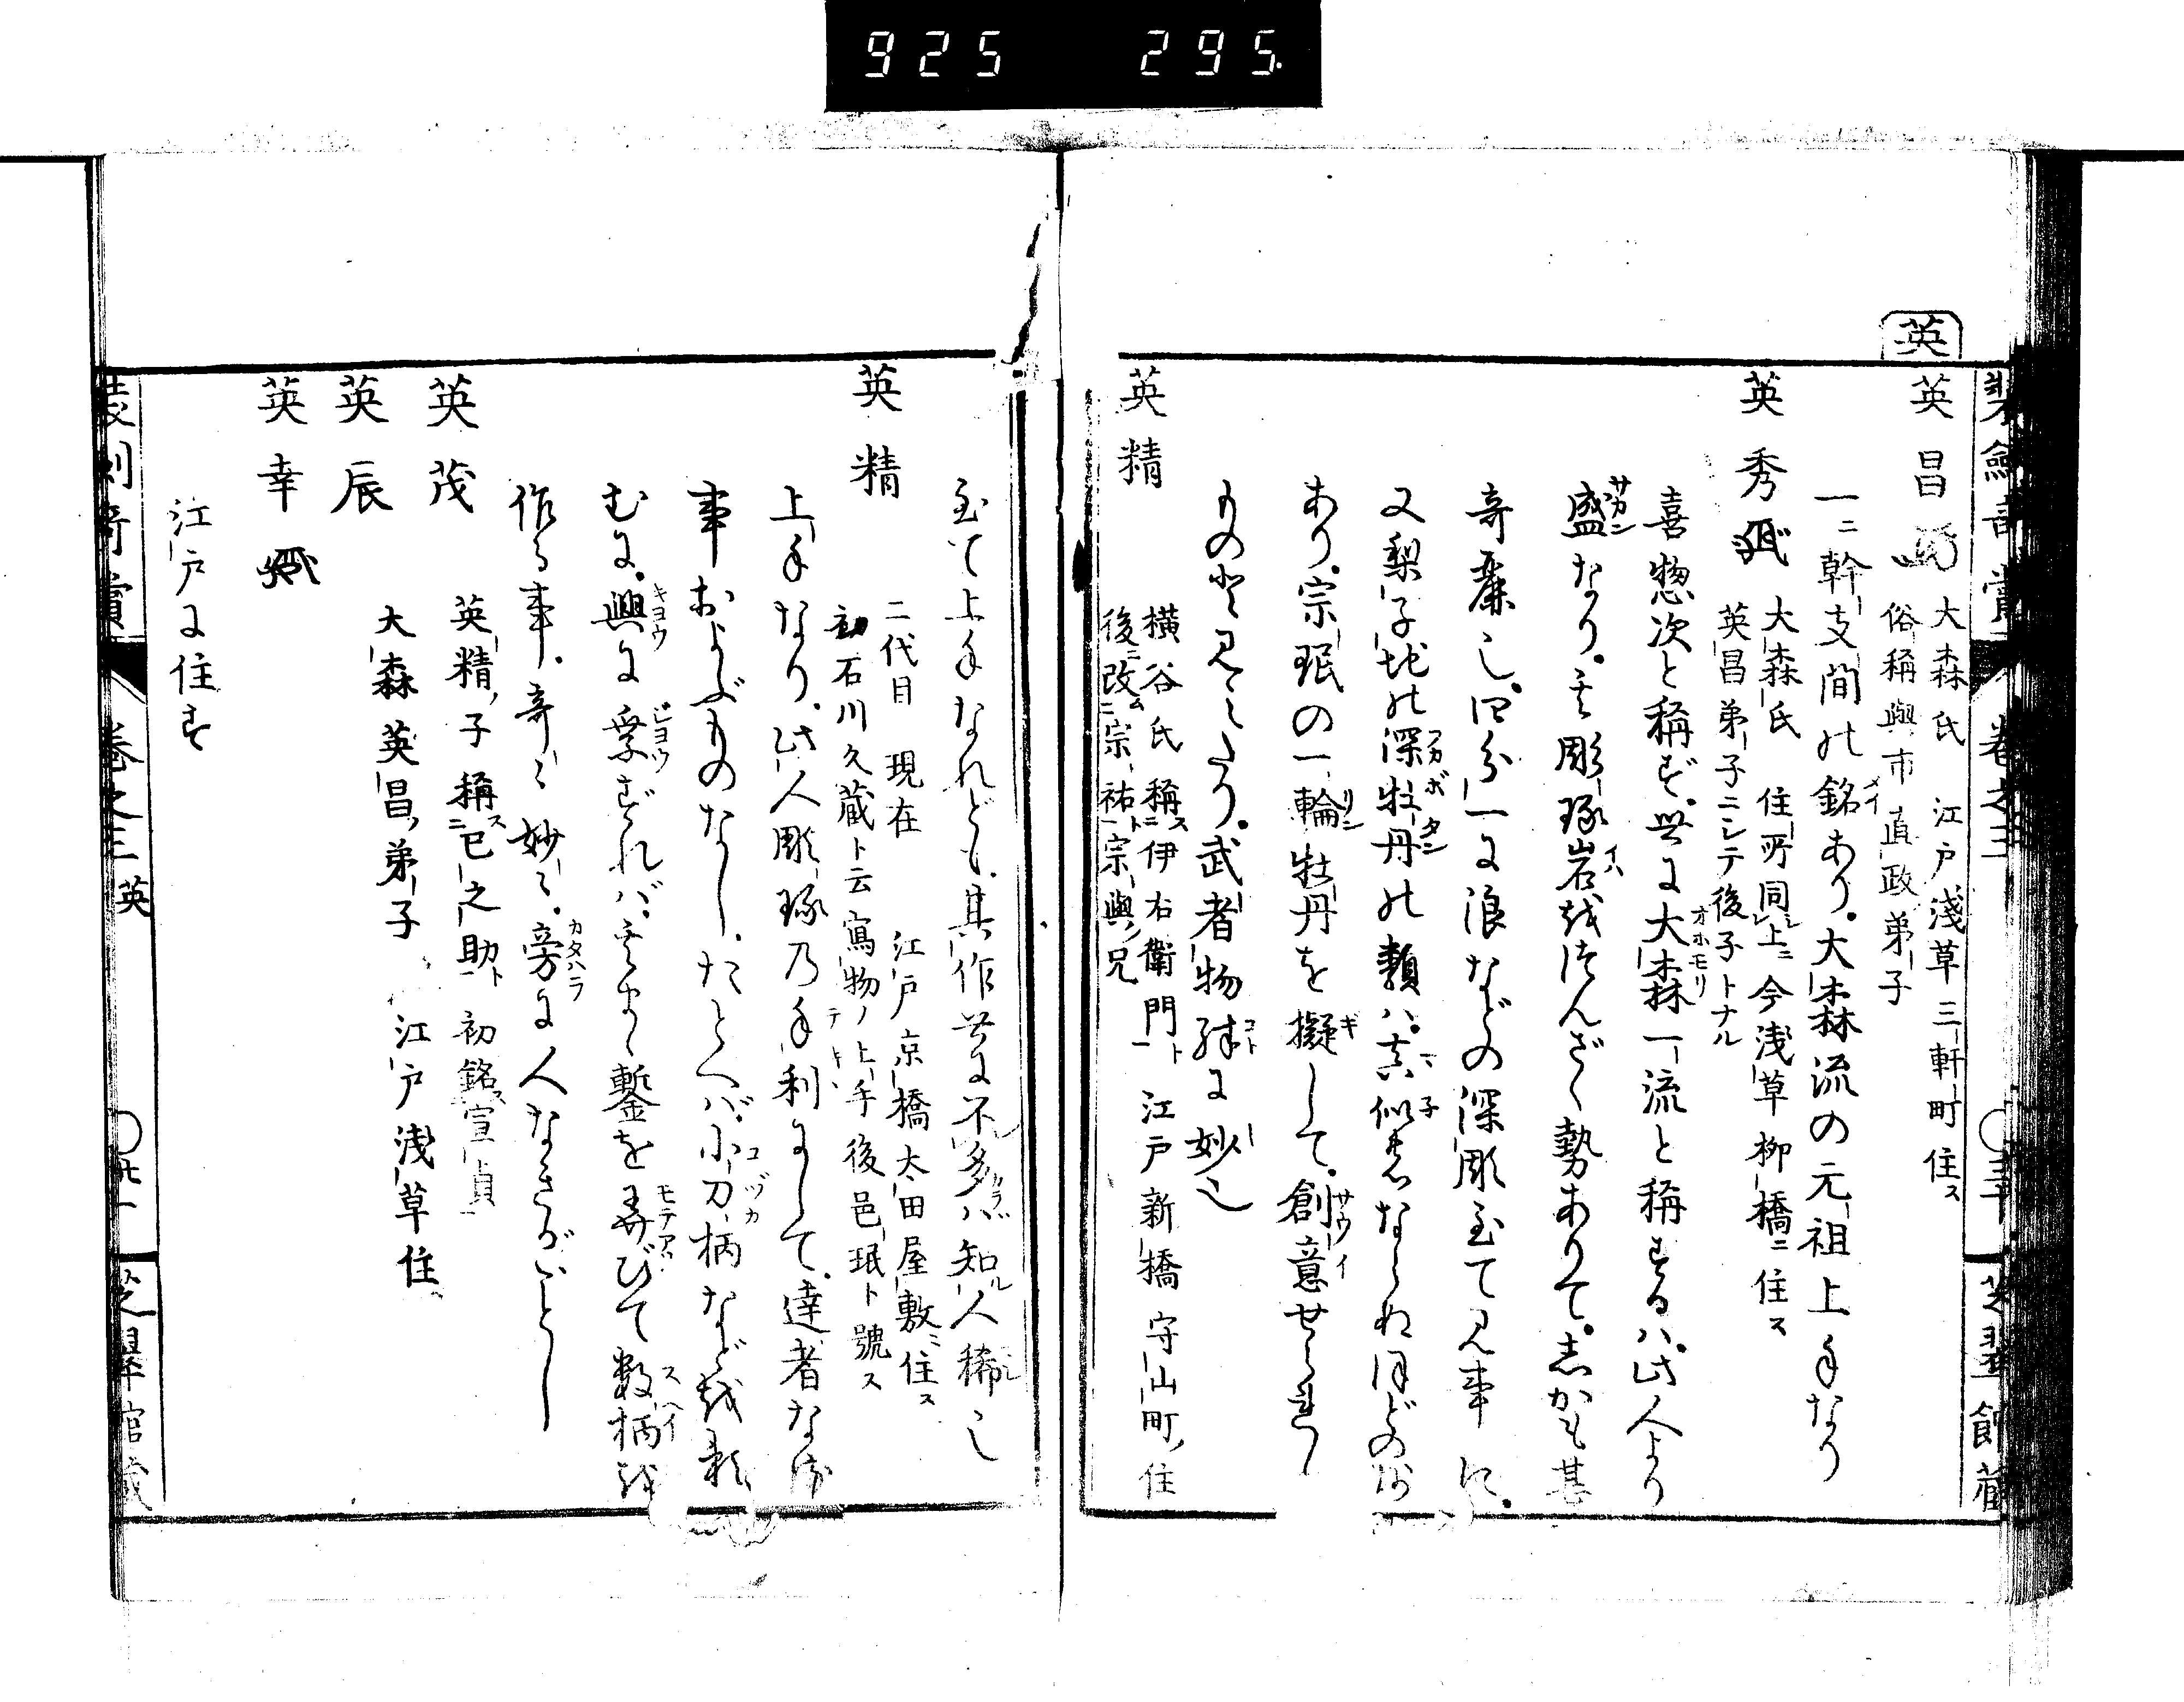 925 295
英
英昌
大森氏 江戸淺草三軒町住ス
俗稱與市直政弟子
一ニ幹支間の銘あり。大森流の元祖上手なり
英秀
大森氏 住所同上ニ今浅草柳橋ニ住ス
英昌弟子ニシテ後子トナル
喜惣次と稱す。世に大森一流と稱するハ。此人より
盛なり。其彫琢岩をたんざく勢ありて。しかも甚
奇麗也。四分一に浪などの深彫至て見事に。
又梨子地の深牡丹の類ハ。真似もならぬほどの
あり。宗珉の一輪牡丹を擬して。創意せられし
ものと見えたり。武者物殊に妙也
英精
横谷氏 稱ス伊右衛門ト 江戸新橋守山町住
後ニ改ム宗祐ト宗與ノ兄
至て上手なれども。其作世に不多ハ知ル人稀也
英精
二代目 現在 江戸京橋太田屋敷ニ住ス
初石川久蔵ト云寫物ノ上手後邑珉ト號ス
上手なり。此人彫琢乃手利にして。達者なる
事およぶものなし。たとへバ。小刀柄などを
むに。興に乗ずれバ。其まゝ鏨を弄びて数柄を
作る事。奇々妙々。旁に人なきがごとし
英茂
英精ノ子稱ス巳之助ト 初銘宣貞
英辰
大森英昌ノ弟子 江戸浅草住
英幸
江戸に住す
卷之三 英